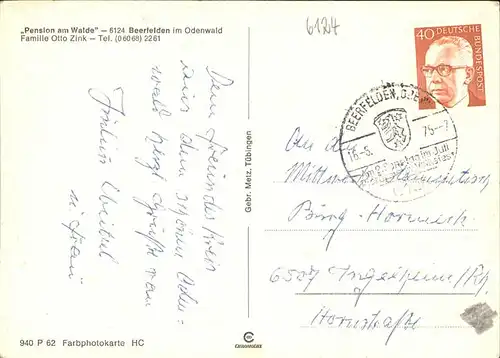 „Pension am Walde" – 6124 Beerfelden im Odenwald
Familie Otto Zink – Tel. (06068) 2261
6124
40 DEUTSCHE BUNDESPOST
BEERFELDEN, ODENW.
16.-5. 75.-7
im Juli
Dem Freundeskreis
aus dem schönen Oden-
wald herzl. Grüße von
u. Frau
Gebr. Metz, Tübingen
An den
Mittwoch Stammtisch
Burg-
6507 Ingelheim/Rh.
940 P 62 Farbphotokarte HC